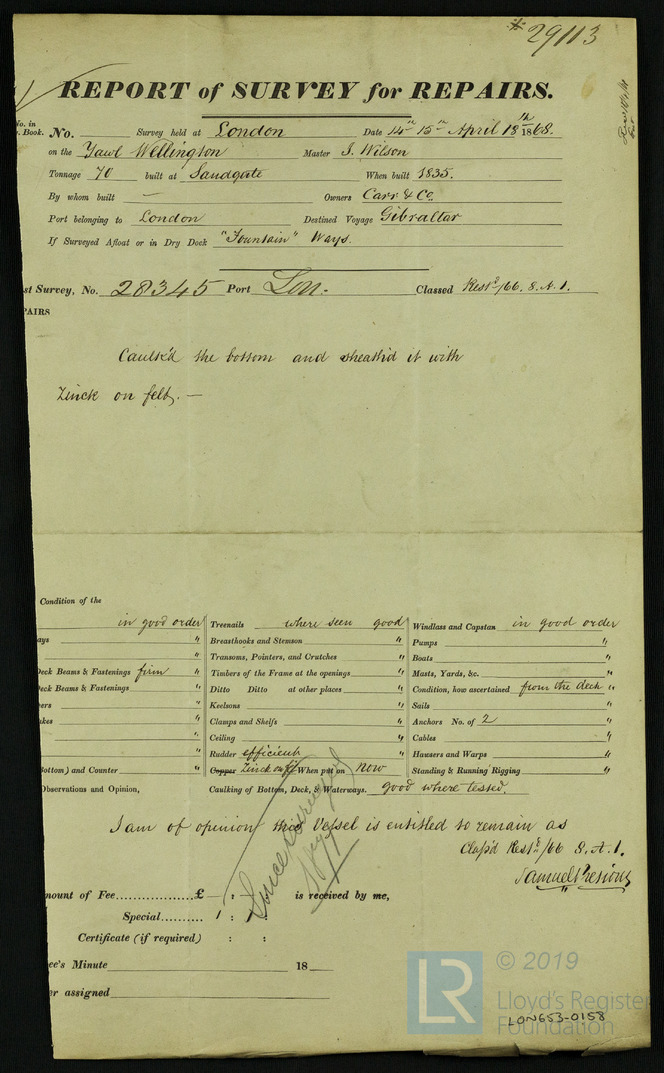 * 29113
REPORT of SURVEY for REPAIRS.
No. in
Book. No. Survey held at London Date 14th 15th April 18th 1868.
on the Yawl Wellington Master J. Wilson
Tonnage 70 built at Sandgate When built 1835.
By whom built — Owners Carr & Co.
Port belonging to London Destined Voyage Gibraltar
If Surveyed Afloat or in Dry Dock "Fountain" Ways.
st Survey, No. 28345 Port Lon: Classed Restd/66. 8. A. 1.
AIRS
Caulk'd the bottom and sheath'd it with
Zinck on felt. —
Condition of the
in good order Treenails where seen good Windlass and Capstan in good order
ays " Breasthooks and Stemson " Pumps "
" Transoms, Pointers, and Crutches " Boats "
Deck Beams & Fastenings firm " Timbers of the Frame at the openings " Masts, Yards, &c. "
Deck Beams & Fastenings " Ditto Ditto at other places " Condition, how ascertained from the deck "
ers " Keelsons " Sails "
akes " Clamps and Shelfs " Anchors No. of 2 "
" Ceiling " Cables "
" Rudder efficient Hawsers and Warps "
Bottom) and Counter " Copper Zinck on felt When put on Now Standing & Running Rigging "
Observations and Opinion, Caulking of Bottom, Deck, & Waterways. good where tested.
I am of opinion this Vessel is entitled to remain as
Class'd Restd/66 8. A. 1.
Samuel Presious
mount of Fee £ — : is received by me,
Special 1 : 1 :
Certificate (if required) : :
Since
ee's Minute 18
er assigned
LR © 2019
Lloyd's Register
Foundation
LON653-0158